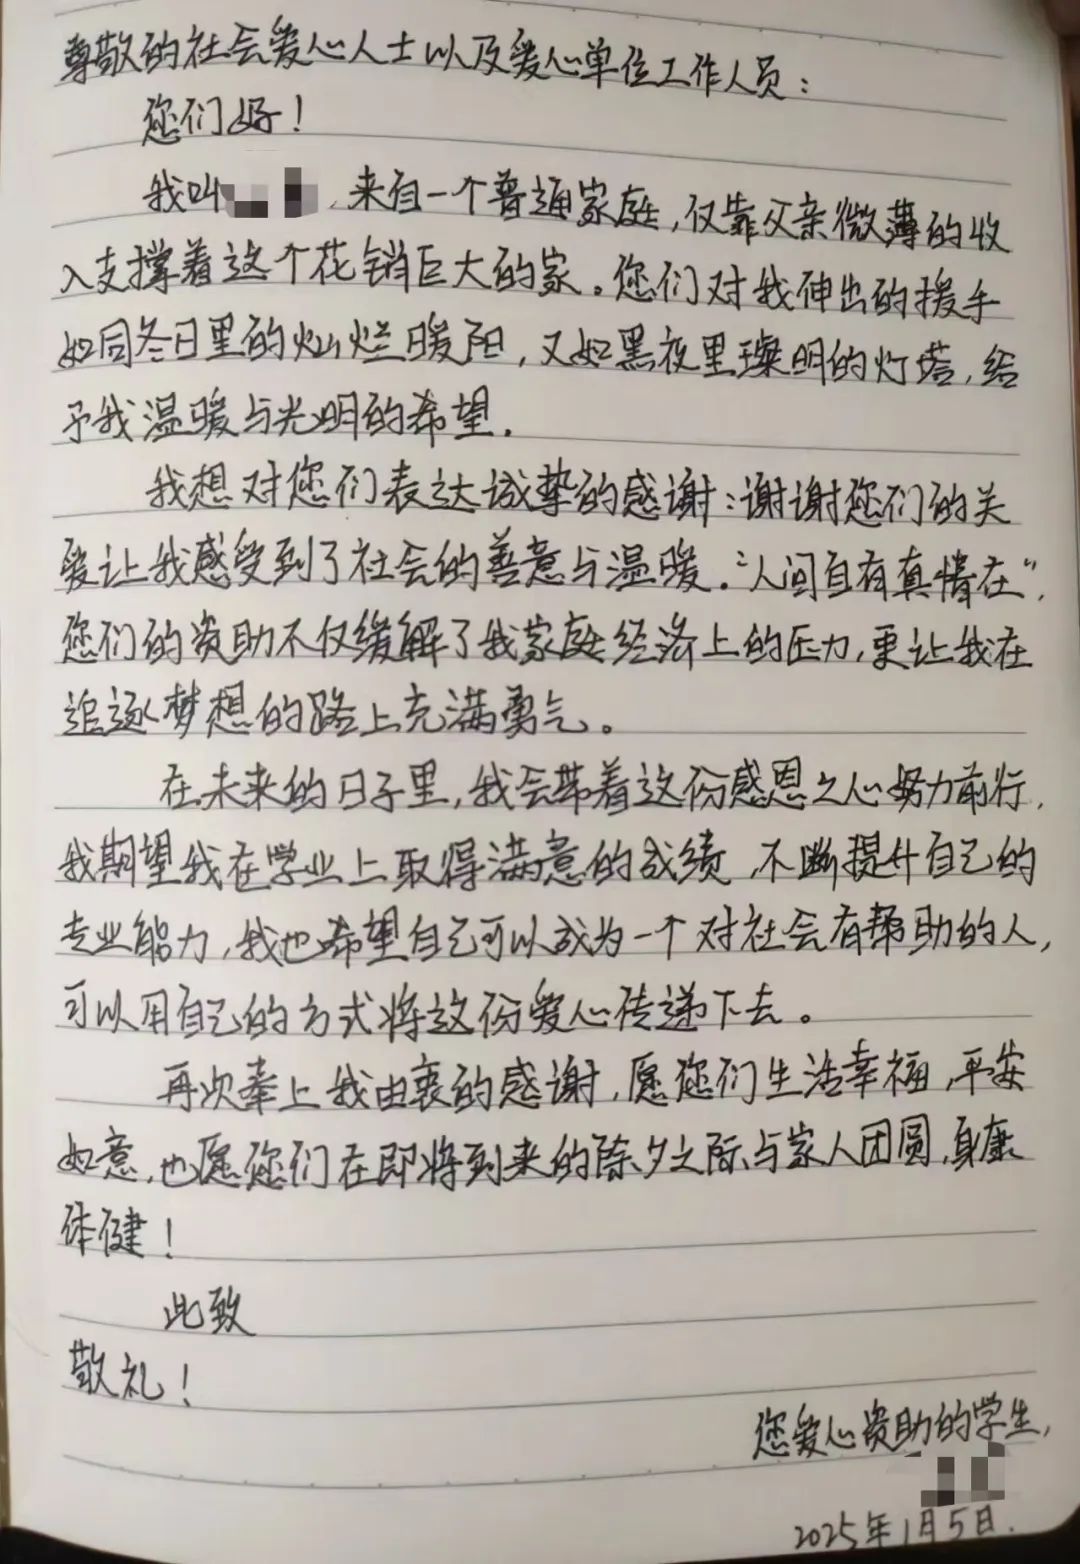 尊敬的社会爱心人士以及爱心单位工作人员：
您们好！
我叫 ，来自一个普通家庭，仅靠父亲微薄的收
入支撑着这个花销巨大的家。您们对我伸出的援手
如同冬日里的灿烂暖阳，又如黑夜里璨明的灯塔，给
予我温暖与光明的希望。
我想对您们表达诚挚的感谢：谢谢您们的关
爱让我感受到了社会的善意与温暖。“人间自有真情在”，
您们的资助不仅缓解了我家庭经济上的压力，更让我在
追逐梦想的路上充满勇气。
在未来的日子里，我会带着这份感恩之心努力前行，
我期望我在学业上取得满意的成绩，不断提升自己的
专业能力，我也希望自己可以成为一个对社会有帮助的人，
可以用自己的方式将这份爱心传递下去。
再次奉上我由衷的感谢，愿您们生活幸福，平安
如意，也愿您们在即将到来的除夕之际与家人团圆，身康
体健！
此致
敬礼！
您爱心资助的学生，
2025年1月5日.